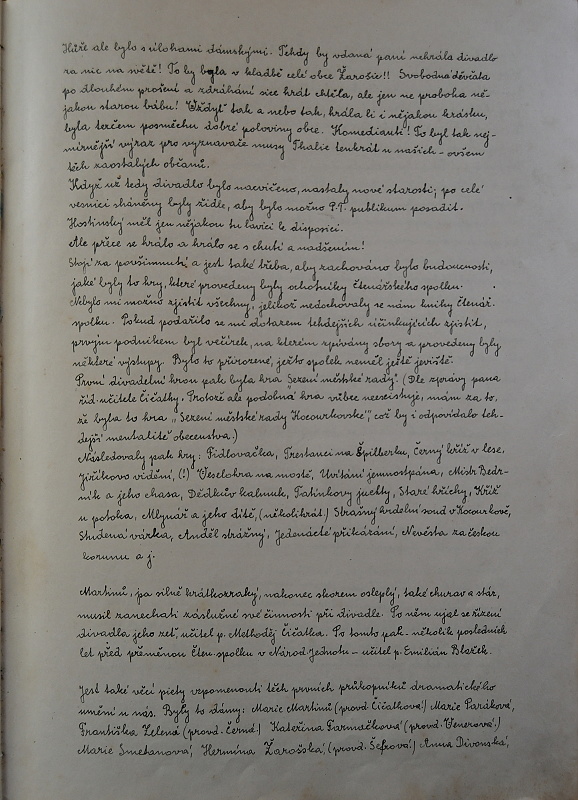 Hůře ale bylo s úlohami dámskými. Tehdy by vdaná paní nehrála divadlo
za nic na světě! To by byla v kladbě celé obce Žarošic!! Svobodná děvčata
po dlouhém prošení a zdráhání sice hrát chtěla, ale jen ne proboha ně-
jakou starou bábu! Vždyť tak a nebo tak, hrála li i nějakou krásku,
byla terčem posměchu dobré poloviny obce. Komedianti! To byl tak nej-
mírnější výraz pro vyznavače musy Thalie tenkrát u našich - ovšem
těch zaostalých občanů.
Když už tedy divadlo bylo nacvičeno, nastaly nové starosti; po celé
vesnici sháněny byly židle, aby bylo možno P.T. publikum posadit.
Hostinský měl jen nějakou tu lavici k disposici.
Ale přece se hrálo a hrálo se s chutí a nadšením!
Stojí za povšimnutí a jest také třeba, aby zachováno bylo budoucnosti,
jaké byly to hry, které provedeny byly ochotníky čtenářského spolku.
Nebylo mi možno zjistit všechny, jelikož nedochovaly se nám knihy čtenář.
spolku. Pokud podařilo se mi dotazem tehdejších účinkujících zjistit,
prvým podnikem byl večírek, na kterém zpívány sbory a provedeny byly
některé výstupy. Bylo to přirozené, ježto spolek neměl ještě jeviště.
První divadelní hrou pak byla hra "Sezení městské rady". (Dle zprávy pana
říd. učitele Čičatky. Protože ale podobná hra vůbec neexistuje, mám za to,
že byla to hra "Sezení městské rady Kocourkovské", což by i odpovídalo teh-
dejší mentalitě obecenstva.)
Následovaly pak hry: Fidlovačka, Trestanci na Špilberku, Černý kříž v lese,
Jiříkovo vidění, (!) Veselohra na mostě, Uvítání jemnostpána, Mistr Bedr-
ník a jeho chasa, Dědkův kalmuk, Tatínkovy juchty, Staré hříchy, Kříž
u potoka, Mlynář a jeho dítě, (několikrát) Strašný hrdelní soud v Kocourkově,
Studená vářka, Anděl strážný, Jedenácté přikázání, Nevěsta za českou
korunu a j.
Martinů, jsa silně krátkozraký, nakonec skorem osleplý, také churav a stár,
musil zanechati záslužné své činnosti při divadle. Po něm ujal se řízení
divadla jeho zeť, učitel p. Methoděj Čičatka. Po tomto pak - několik posledních
let před přeměnou čten. spolku v Národ. jednotu - učitel p. Emilián Blažek.
Jest také věcí piety vzpomenouti těch prvních průkopníků dramatického
umění u nás. Byly to dámy: Marie Martinů (provd. Čičatková) Marie Paráková,
Františka Zelená (provd. Černá) Kateřina Farmačková (provd. Venerová)
Marie Smetanová, Hermína Žarošská, (provd. Šefrová) Anna Divonská,